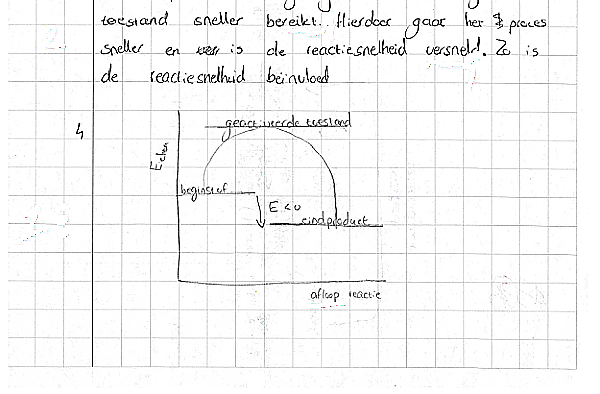 toestand sneller bereikt. Hierdoor gaat het proces
sneller en is de reactiesnelheid versneld. Zo is
de reactiesnelheid beïnvloed
4
geactiveerde toestand
Echem
beginstof
E<0
eindproduct
afloop reactie